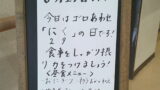 今日はゴロあわせ
「にく」の日です!
２９
食事をしっかり摂り
力をつけましょう!
<昼食メニュー>